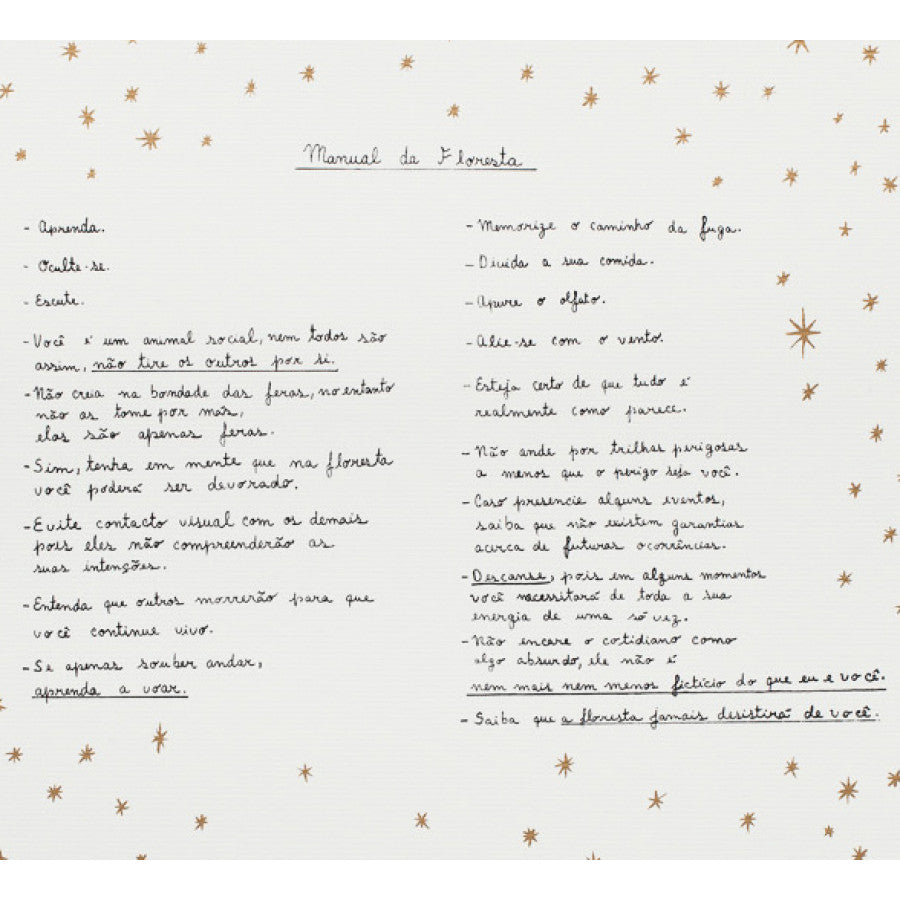 Manual da Floresta
- Aprenda.
- Oculte-se.
- Escute.
- Você é um animal social, nem todos são
assim, não tire os outros por si.
- Não creia na bondade das feras, no entanto
não as tome por más,
elas são apenas feras.
- Sim, tenha em mente que na floresta
você poderá ser devorado.
- Evite contacto visual com os demais
pois eles não compreenderão as
suas intenções.
- Entenda que outros morrerão para que
você continue vivo.
- Se apenas souber andar,
aprenda a voar.
- Memorize o caminho da fuga.
- Divida a sua comida.
- Apure o olfato.
- Alie-se com o vento.
- Esteja certo de que tudo é
realmente como parece.
- Não ande por trilhas perigosas
a menos que o perigo seja você.
- Caso presencie alguns eventos,
saiba que não existem garantias
acerca de futuras ocorrências.
- Descanse, pois em alguns momentos
você necessitará de toda a sua
energia de uma só vez.
- Não encare o cotidiano como
algo absurdo, ele não é
nem mais nem menos fictício do que eu e você.
- Saiba que a floresta jamais desistirá de você.